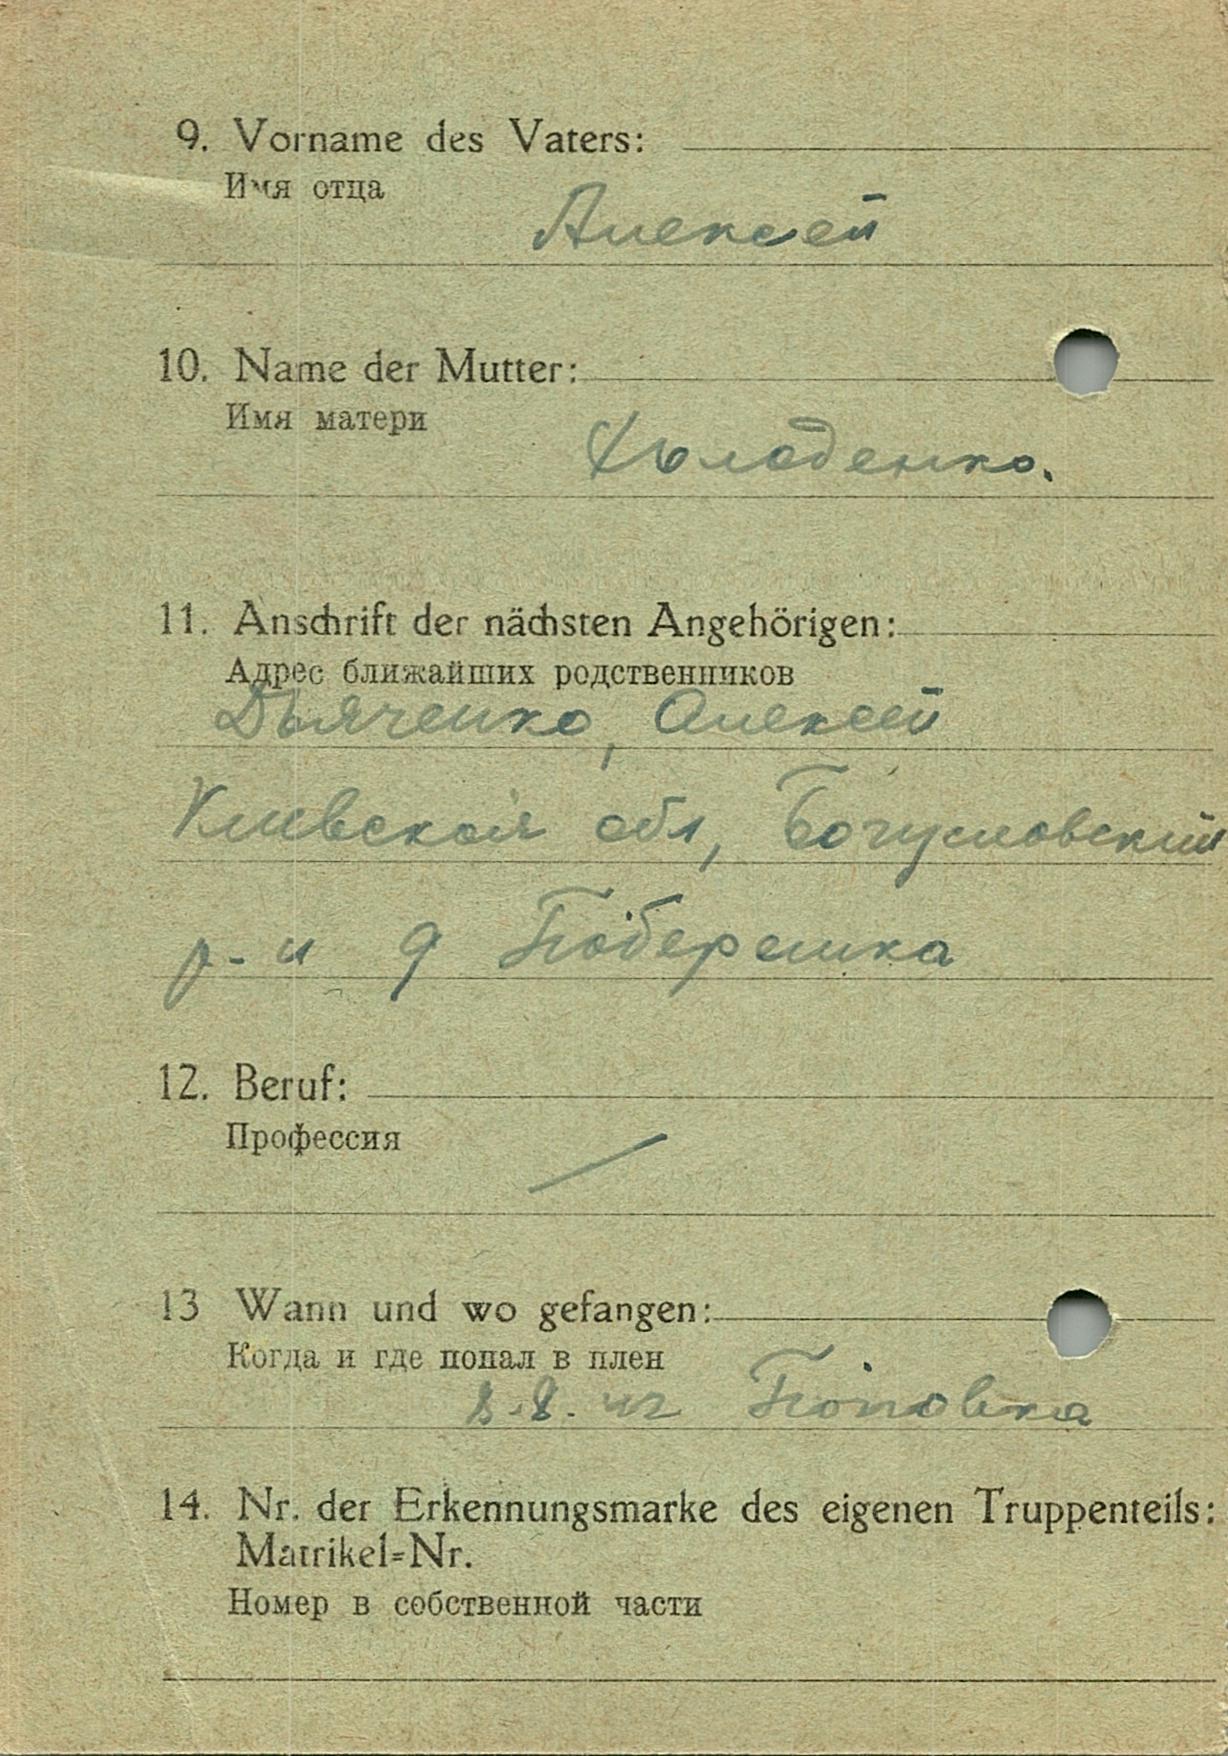 9. Vorname des Vaters:
Имя отца
Алексей
10. Name der Mutter:
Имя матери
Холоденко.
11. Anschrift der nächsten Angehörigen:
Адрес ближайших родственников
Дьяченко, Алексей
Киевская обл, Богуславский
р-н д Поберешка
12. Beruf:
Профессия
13 Wann und wo gefangen:
Когда и где попал в плен
8.8.42 Поповка
14. Nr. der Erkennungsmarke des eigenen Truppenteils:
Matrikel=Nr.
Номер в собственной части